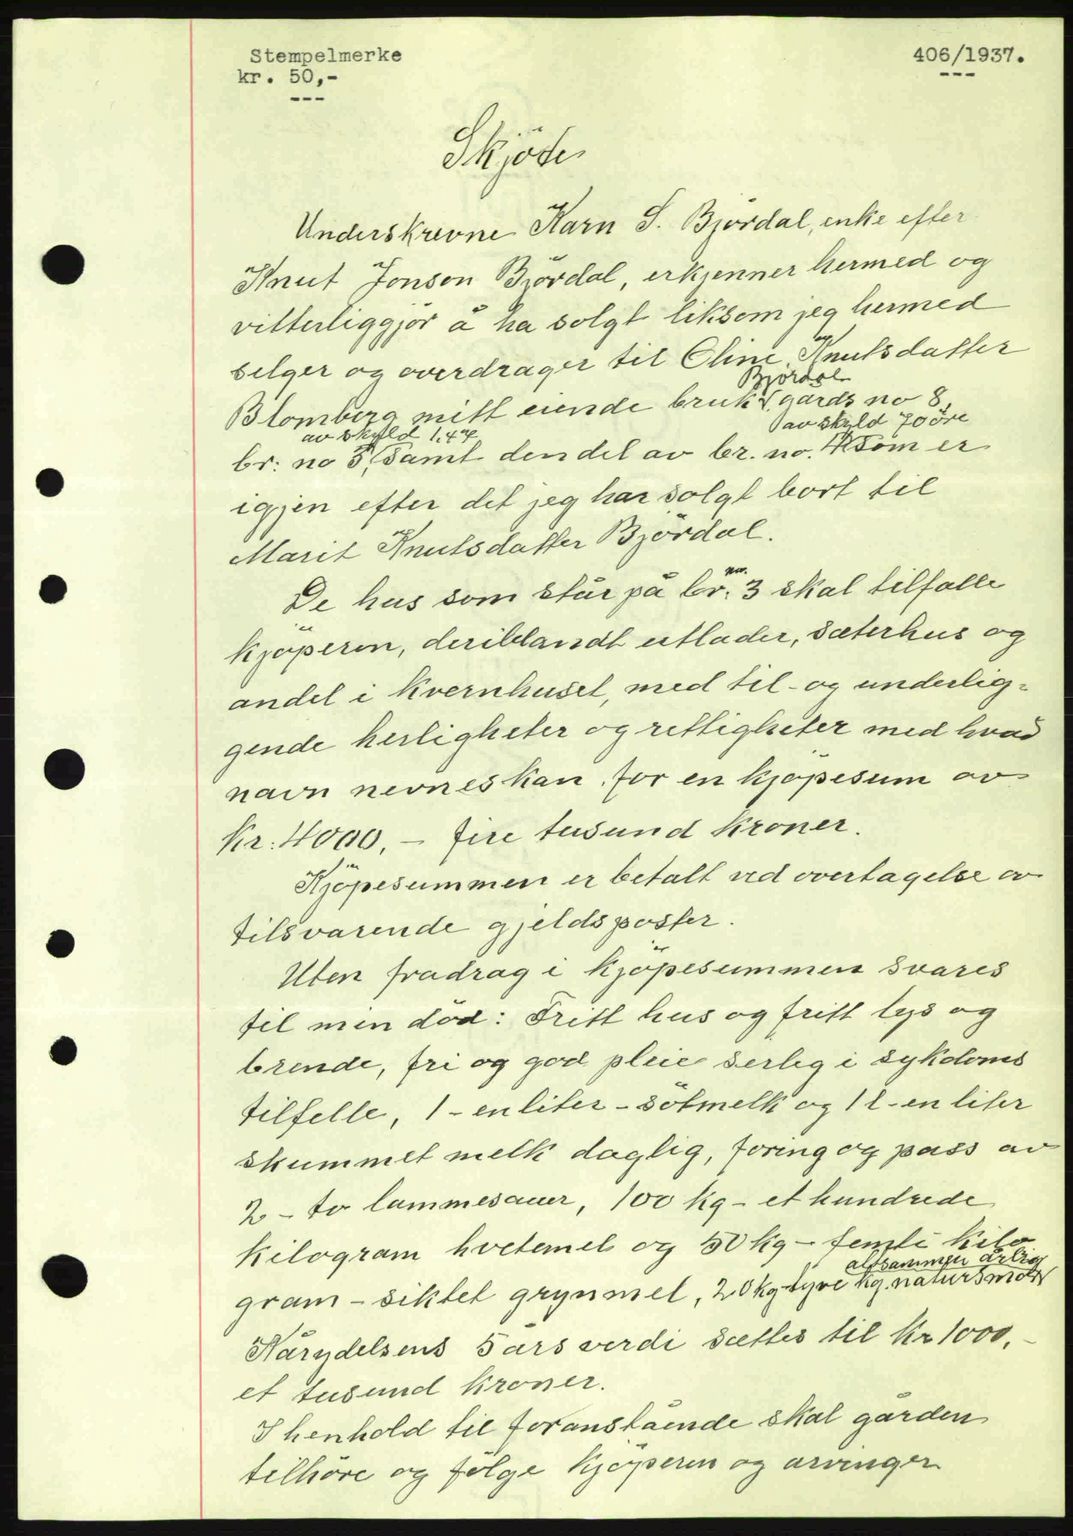 Stempelmerke
kr. 50,-
---
406/1937.
---
Skjöte
Underskrevne Karn S. Björdal, enke efter
Knut Jonson Björdal, erkjenner hermed og
vitterliggjör å ha solgt liksom jeg hermed
selger og overdrager til Oline Knutsdatter
Blomberg mitt eiende bruk Björdal gårds no 8,
br: no 3, av skyld 1,47 samt den del av br. no. 4 av skyld 70 öre som er
igjen efter det jeg har solgt bort til
Marit Knutsdatter Björdal.
De hus som står på br. no. 3 skal tilfalle
kjöperen, deriblandt utlader, sæterhus og
andel i kvernhuset, med til- og underlig=
gende herligheter og rettigheter med hvad
navn nevnes kan for en kjöpesum av
Kr: 4000,- fire tusund kroner.
Kjöpesummen er betalt ved overtagelse av
tilsvarende gjeldsposter.
Uten fradrag i kjöpesummen svares
til min död: Fritt hus og fritt lys og
brende, fri og god pleie serleg i sykdoms
tilfelle, 1 - en liter - sötmelk og 1 l - en liter
skummet melk daglig, foring og pass av
2 - to lammesauer, 100 kg - et hundrede
kilogram hvetemel og 50 kg - femti kilo
gram - siktet grynmel, 20 kg - tyve kg. natursmör altsammen årlig
Kårydelsens 5 års verdi sættes til Kr 1000,-
et tusund kroner.
I henhold til foranstående skal gården
tilhöre og fölge kjöperen og arvinger